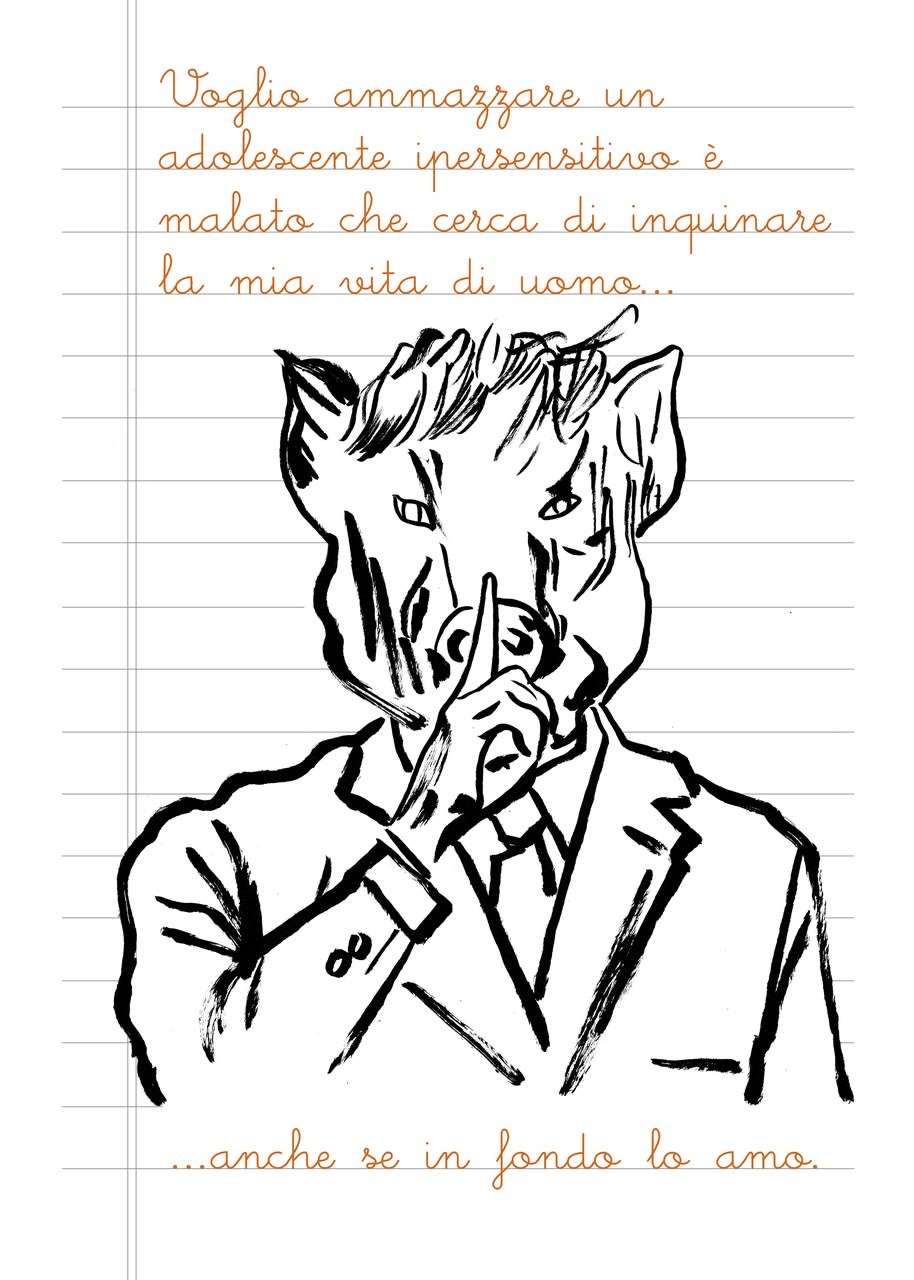 Voglio ammazzare un
adolescente ipersensitivo è
malato che cerca di inquinare
la mia vita di uomo...
...anche se in fondo lo amo.